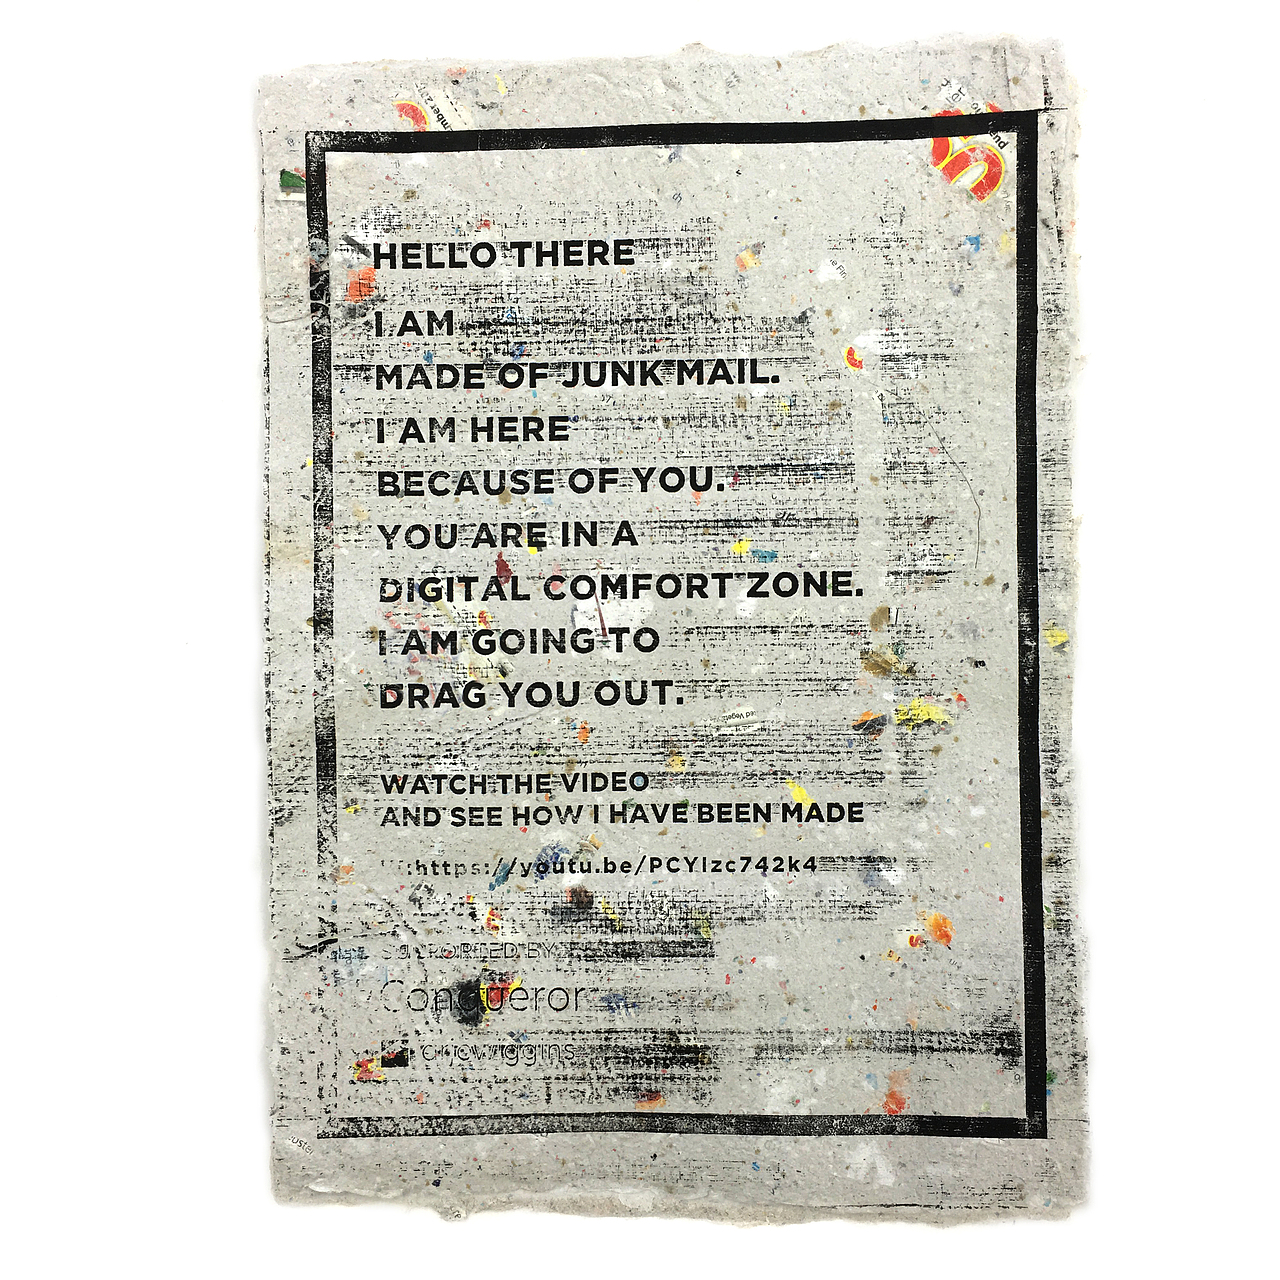 HELLO THERE
I AM
MADE OF JUNK MAIL.
I AM HERE
BECAUSE OF YOU.
YOU ARE IN A
DIGITAL COMFORT ZONE.
I AM GOING TO
DRAG YOU OUT.
WATCH THE VIDEO
AND SEE HOW I HAVE BEEN MADE
https://youtu.be/PCYIzc742k4
SUPPORTED BY
Conqueror